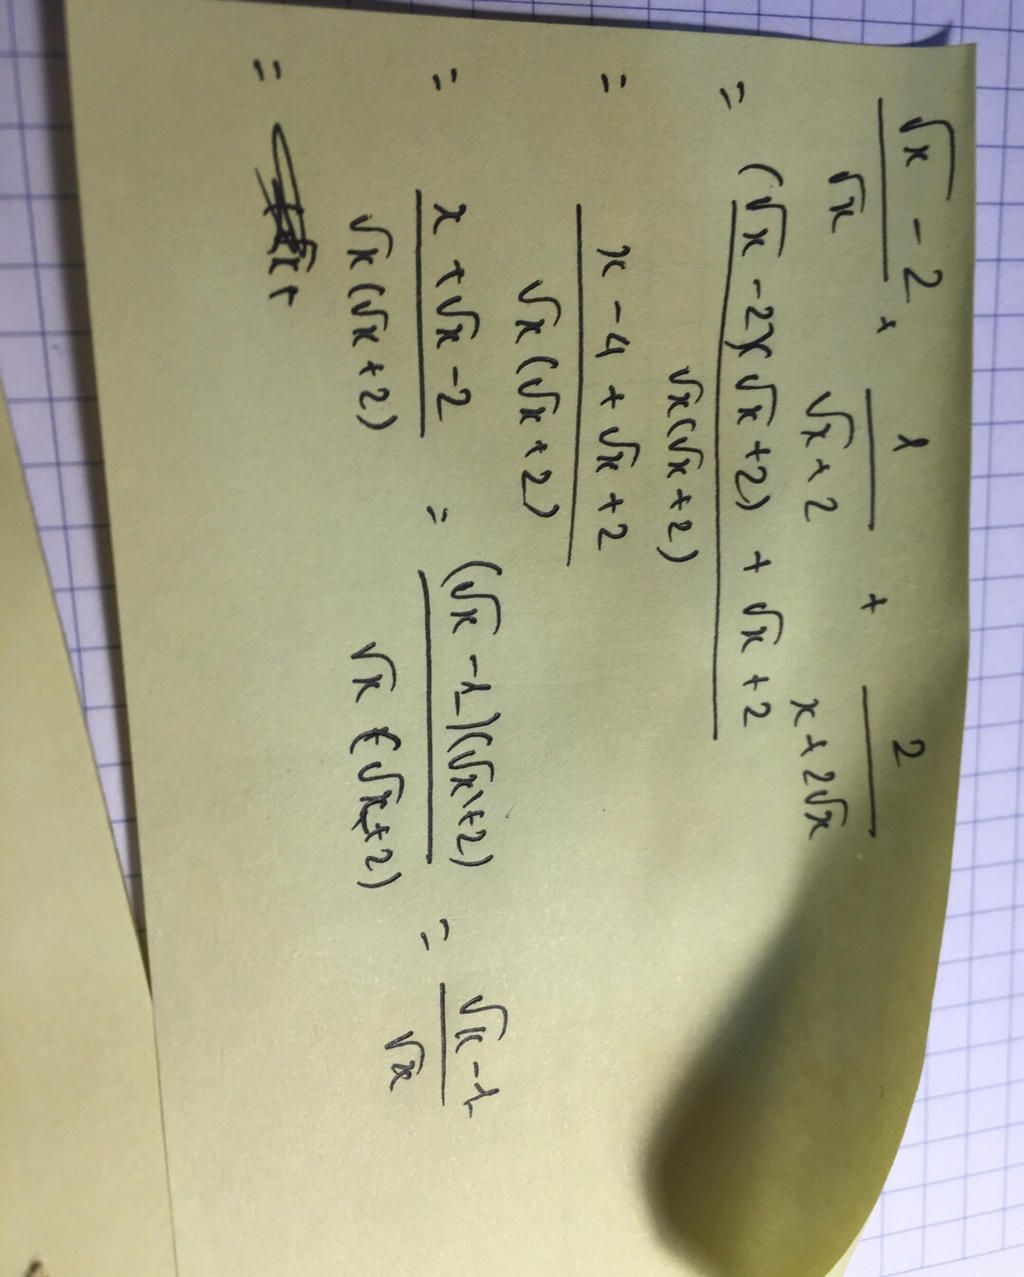 (√x - 2)/√x + 1/(√x + 2) + 2/(x + 2√x)
= ((√x - 2)(√x + 2) + √x + 2)/(√x(√x + 2))
= (x - 4 + √x + 2)/(√x(√x + 2))
= (x + √x - 2)/(√x(√x + 2)) = ((√x - 1)(√x + 2))/(√x(√x + 2)) = (√x - 1)/√x
=